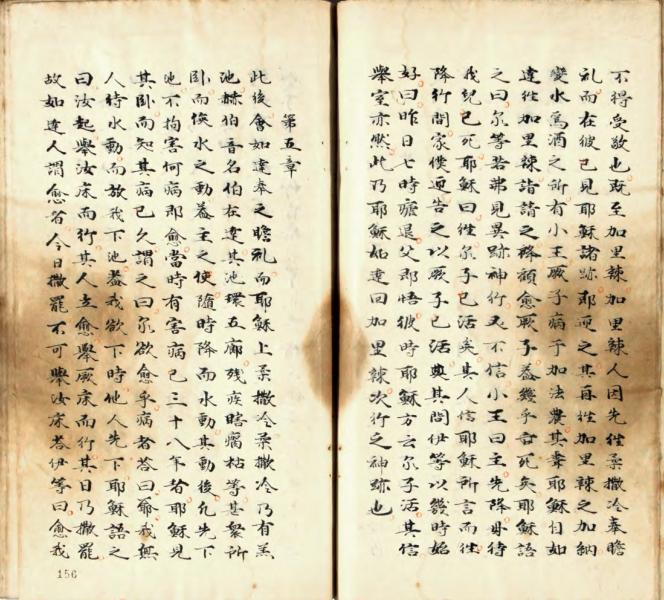 不得受敬也既至加里辣加里辣人因先徃柔撒冷奉瞻
礼而在彼已見耶穌諸跡即迎之其再徃加里辣之加納
變水為酒之所有小王厥子病于加法農其聿耶穌自如
達徃加里辣詣請之降頋愈厥子葢幾乎死矣耶穌語
之曰尔等若弗見異跡神行不信小王曰主先降毋待
我兒已死耶穌曰徃尔子已活矣其人信耶穌所言而徃
降行間家僕迎告之以厥子已活輿其問伊等以幾時始
好曰昨日七時瘧退父即悟彼時耶穌方云尔子活其信
舉室亦然此乃耶穌如達回加里辣次行之神跡也
第五章
此後會如達奉之瞻礼而耶穌上柔撒冷柔撒冷乃有羔
池赫伯音名伯在達其池環五廊殘疾瞎瘸枯等甚衆所
臥而俟水之動葢主之使隨時降而水動其動後凢先下
池不拘害何病即愈當時有害病已三十八年者耶穌見
其卧而知其病已久謂之曰尔欲愈乎病者荅曰爺我無
人待水動而放我下池葢我欲下時他人先下耶穌語之
曰汝起舉汝床而行其人立愈舉厥床而行其日乃撒罷
故如達人謂愈者今日撒罷不可舉汝床荅伊等曰愈我
156